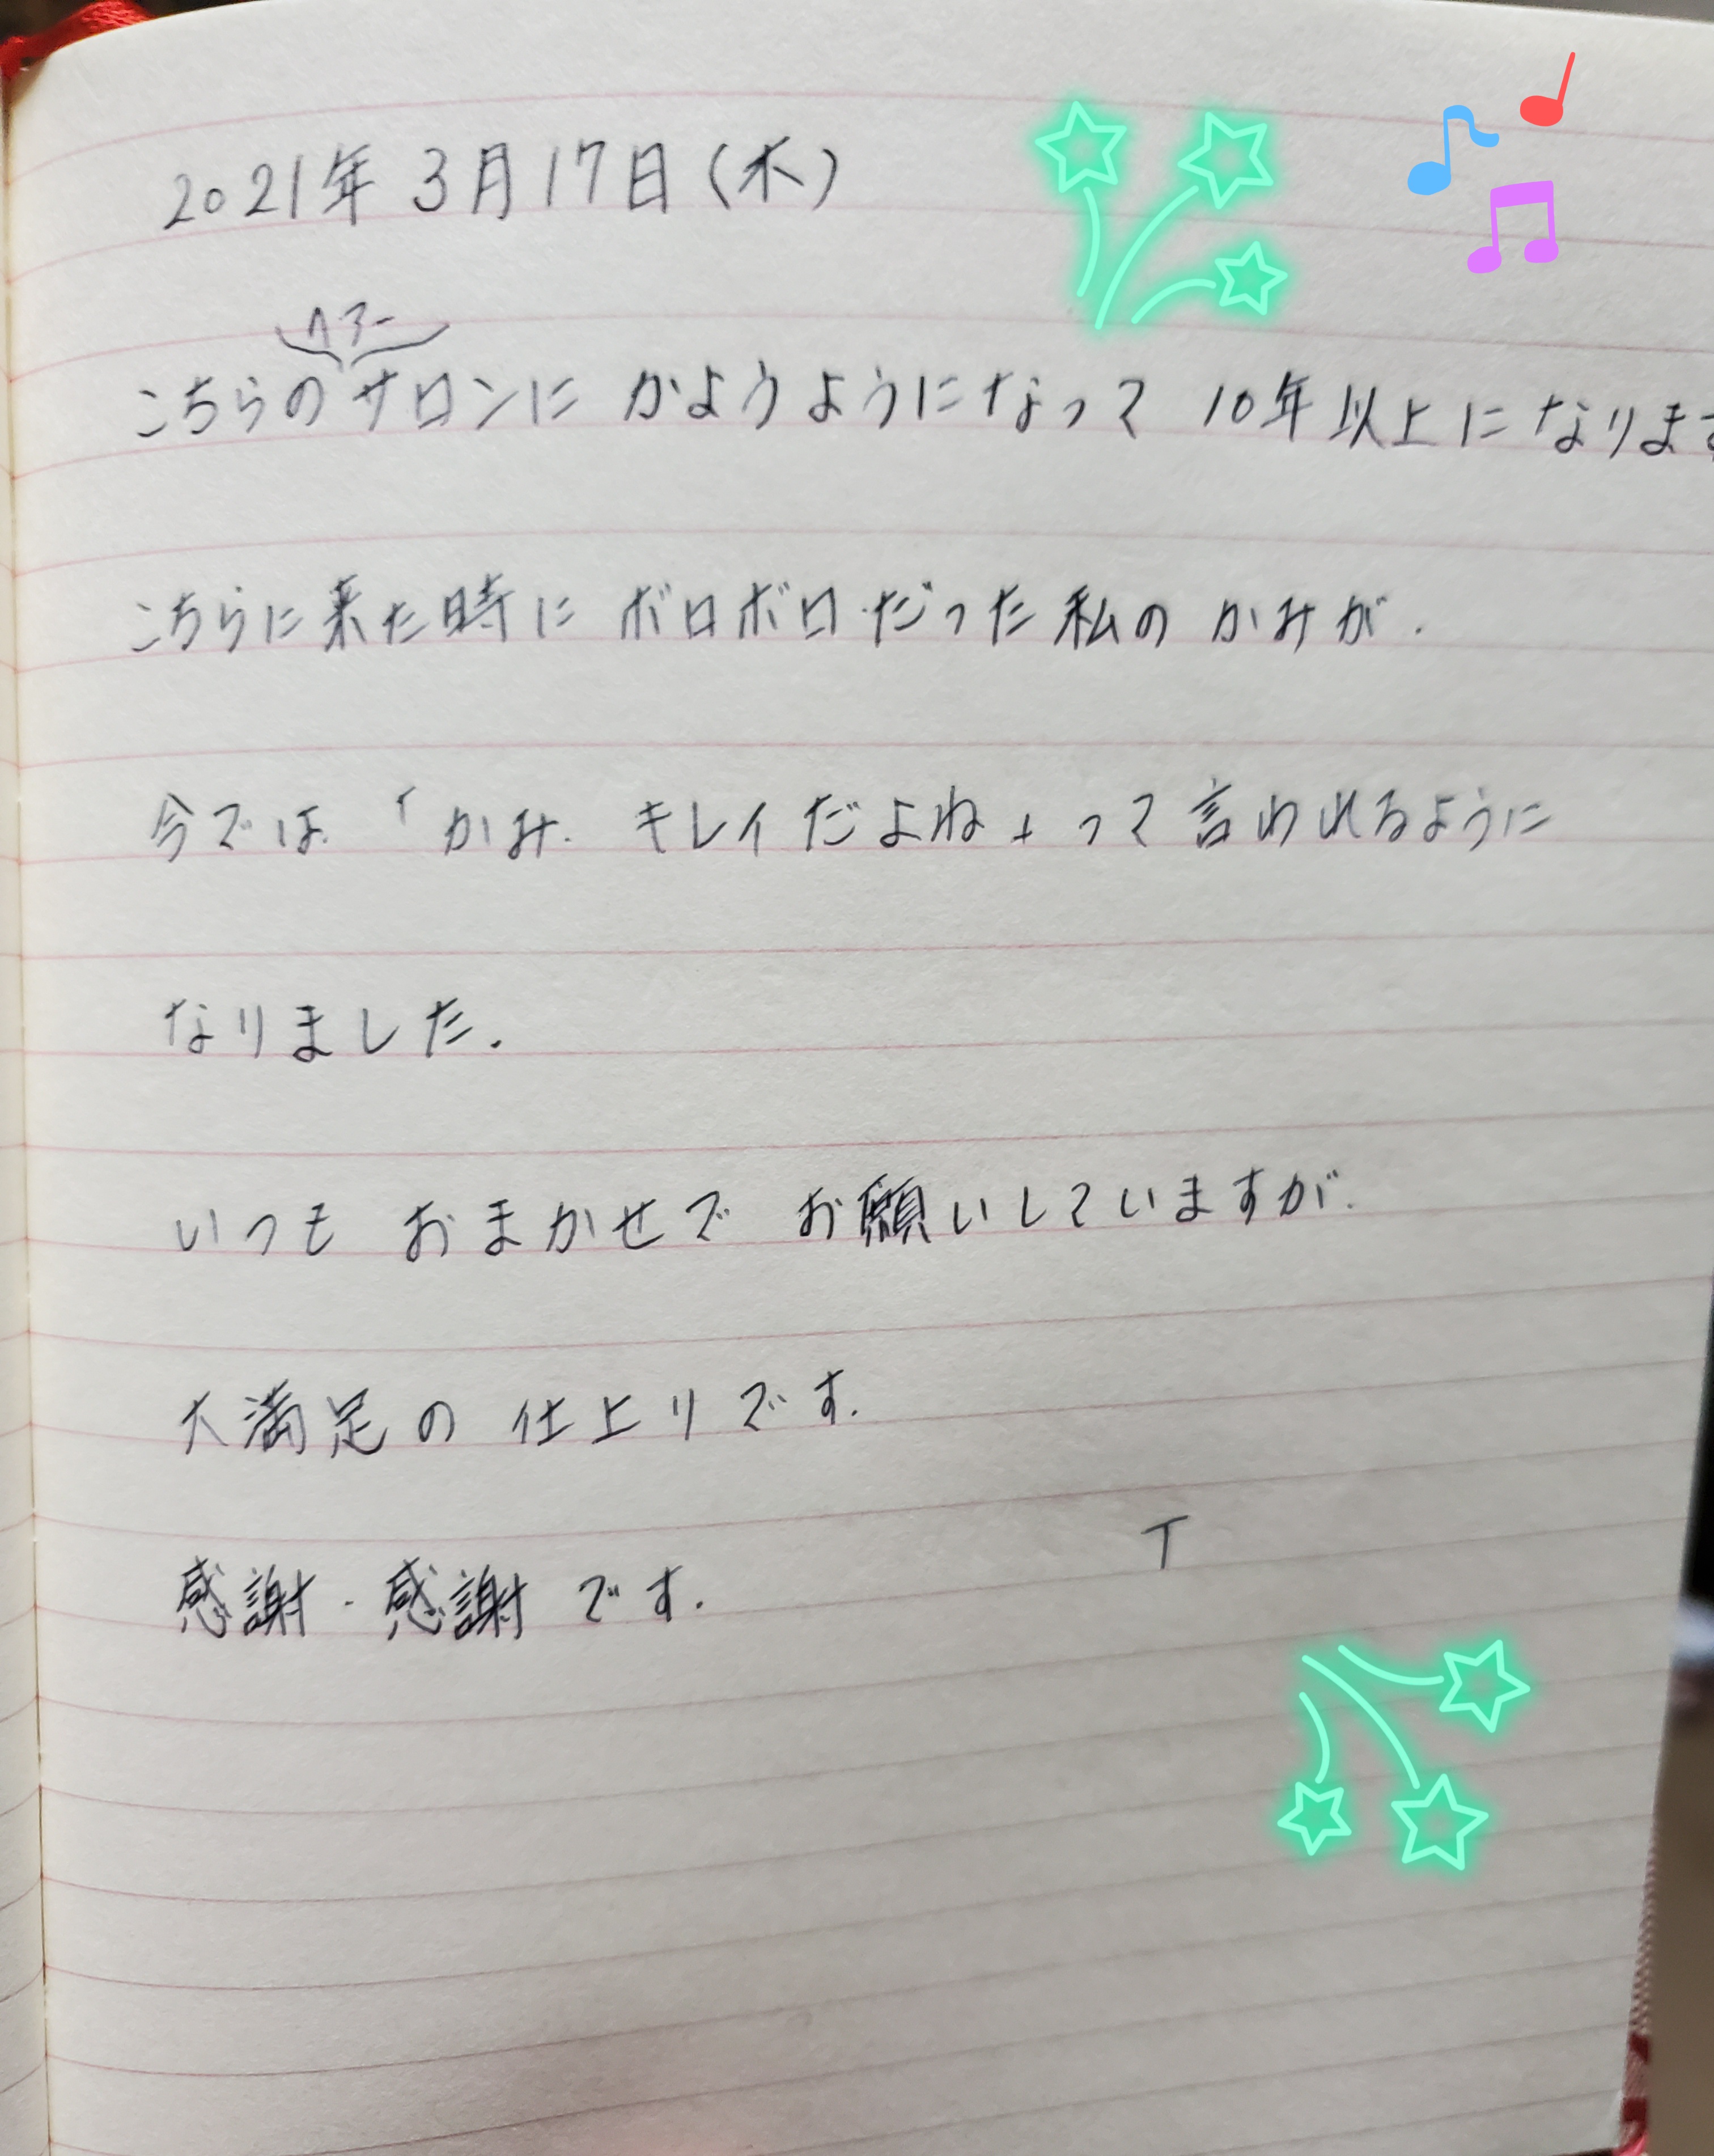 2021年3月17日(木)
ヘアー
こちらのサロンに かようようになって 10年以上になります
こちらに来た時に ボロボロだった私の かみが.
今では「かみ. キレイだよね」って言われるように
なりました.
いつも おまかせで お願いしていますが.
大満足の 仕上りです.
感謝・感謝です.
T